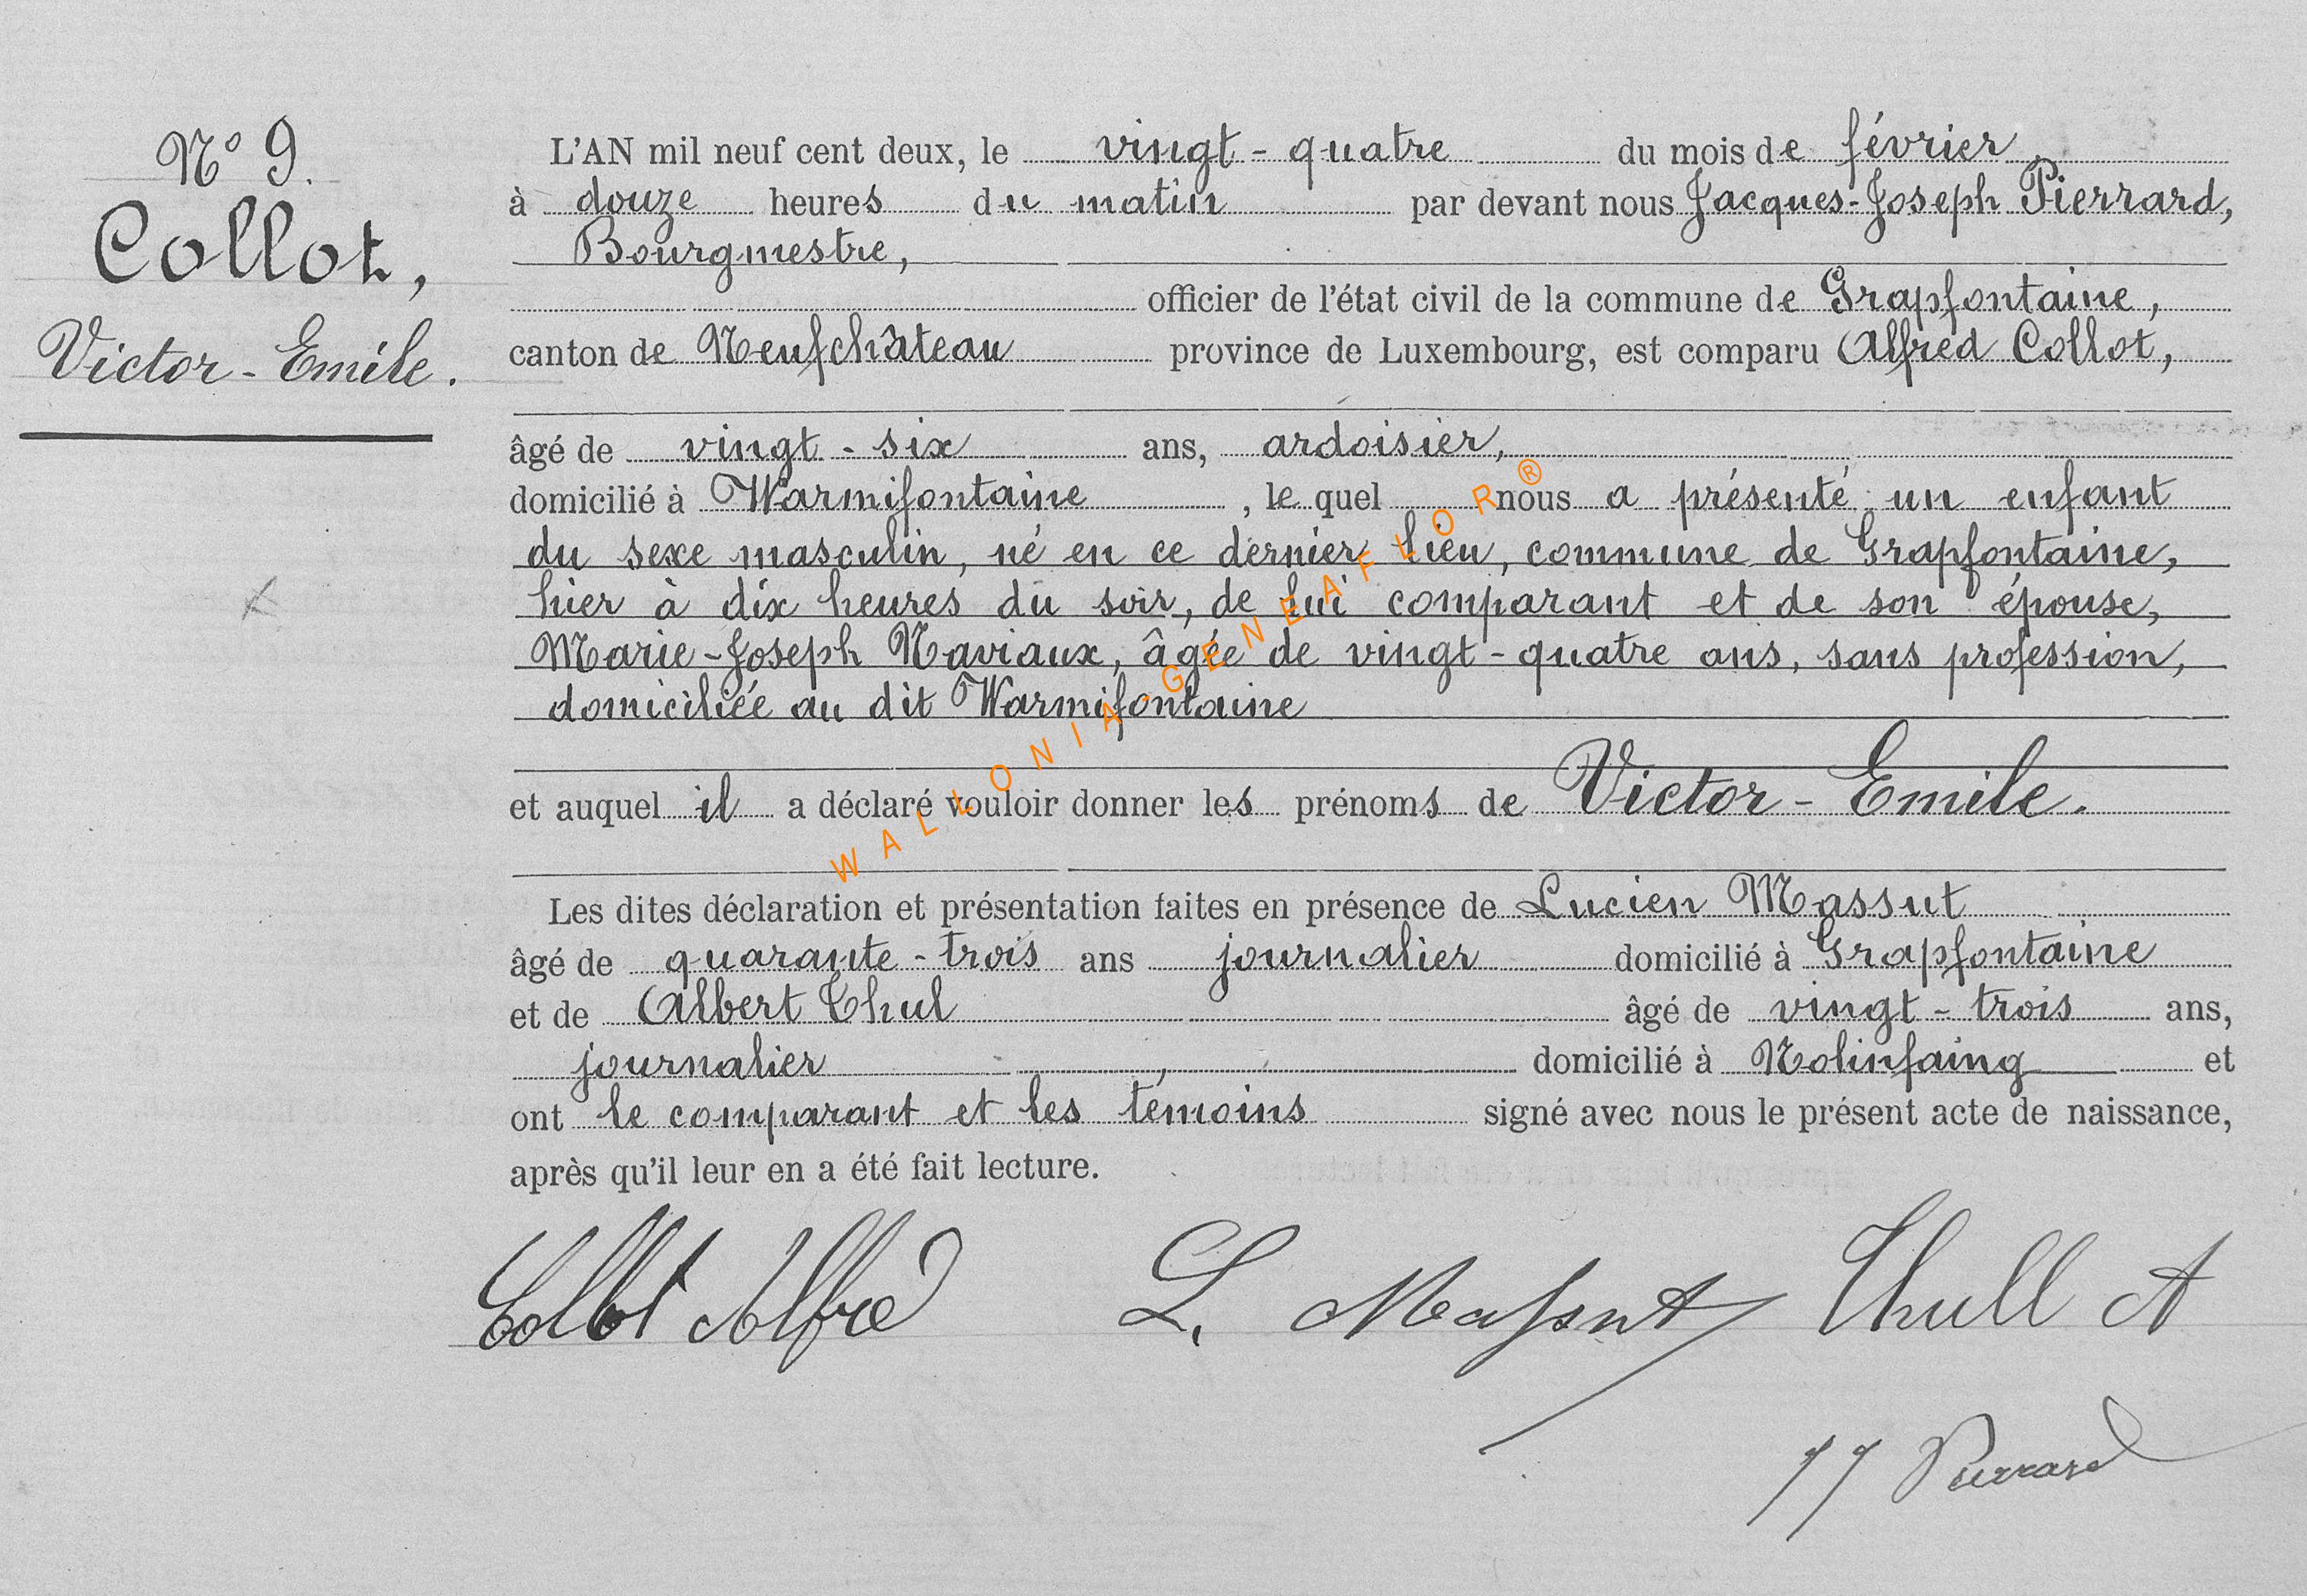 N° 9.
Collot,
Victor-Emile.
L'AN mil neuf cent deux, le vingt-quatre du mois de février
à douze heures du matin par devant nous Jacques-Joseph Pierrard,
Bourgmestre,
officier de l'état civil de la commune de Grapfontaine,
canton de Neufchâteau province de Luxembourg, est comparu Alfred Collot,
âgé de vingt-six ans, ardoisier,
domicilié à Warmifontaine, le quel nous a présenté un enfant
du sexe masculin, né en ce dernier lieu, commune de Grapfontaine,
hier à dix heures du soir, de lui comparant et de son épouse,
Marie-Joseph Naviaux, âgée de vingt-quatre ans, sans profession,
domiciliée au dit Warmifontaine
et auquel il a déclaré vouloir donner les prénoms de Victor-Emile.
Les dites déclaration et présentation faites en présence de Lucien Massut
âgé de quarante-trois ans journalier domicilié à Grapfontaine
et de Albert Thul âgé de vingt-trois ans,
journalier, domicilié à Nolinfaing et
ont le comparant et les témoins signé avec nous le présent acte de naissance,
après qu'il leur en a été fait lecture.
Collot Alfred L. Massut Thull A
JJ Pierrard
WALLONIA-GENEAFLOR®